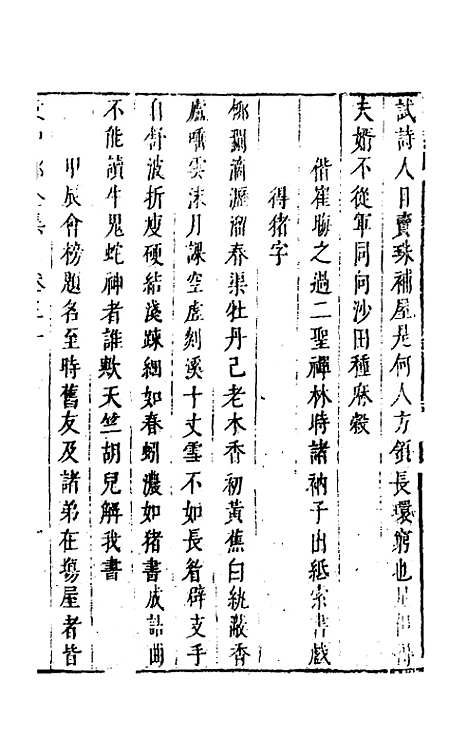 試詩人目賣珠補屋是何人方領長環窮也
夫婿不從軍同向沙田種麻穀
偕崔晦之過二聖禪林時諸衲子出紙索書戲
得猪字
柳瀾滴瀝溜春渠牡丹已老木香初黃蕉白紈蔽香
廬嚥雲沫月課空虛刻溪十丈雪不如長眉辟支手
自舒波折瘦硬結淺踈細如春蚓濃如猪書成詰曲
不能讀牛鬼蛇神者誰歟天竺胡兒解我書
甲辰會榜題名至時舊友及諸弟在塲屋者皆
中郎全集 卷三十